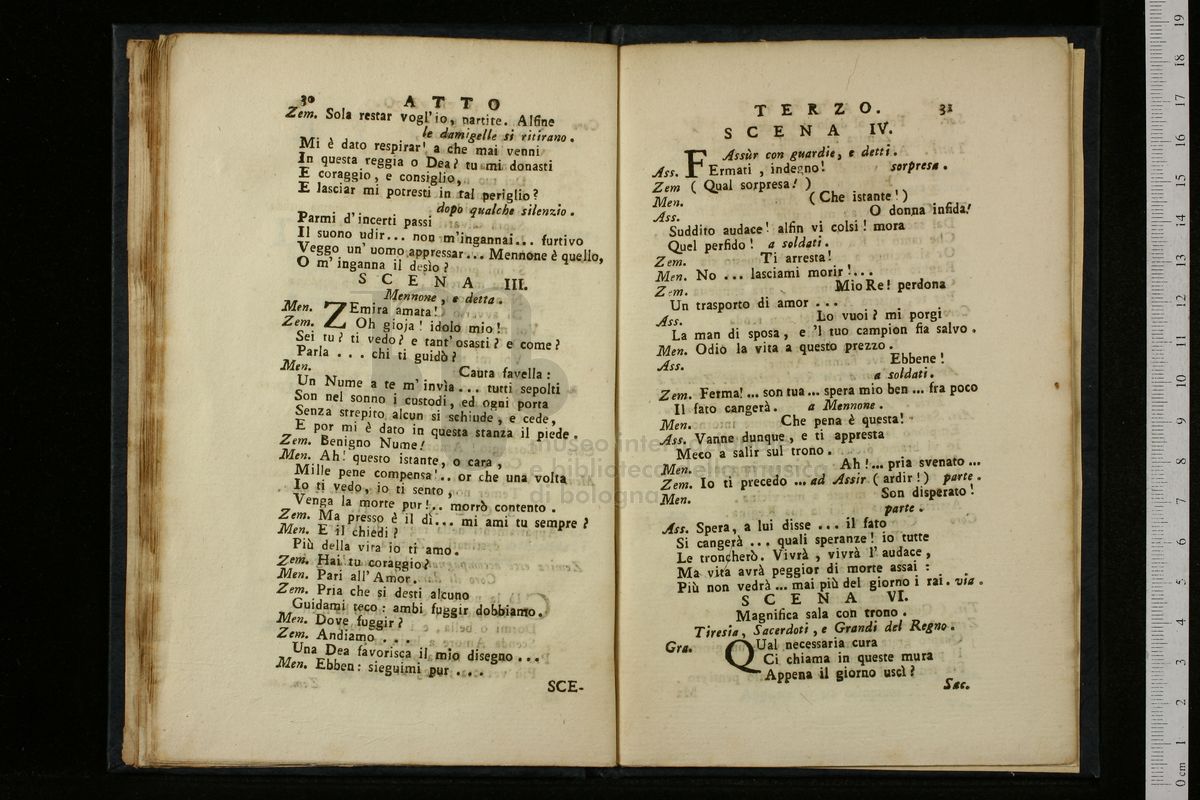 30 ATTO
Zem. Sola restar vogl'io, partite. Alfine
le damigelle si ritirano.
Mi è dato respirar! a che mai venni
In questa reggia o Dea? tu mi donasti
E coraggio, e consiglio,
E lasciar mi potresti in tal periglio?
dopo qualche silenzio.
Parmi d'incerti passi
Il suono udir... non m'ingannai... furtivo
Veggo un' uomo appressar... Mennone è quello,
O m'inganna il desìo?
SCENA III.
Mennone, e detta.
Men. ZEmira amata!
Zem. Oh gioja! idolo mio!
Sei tu? ti vedo? e tant'osasti? e come?
Parla ... chi ti guidò?
Men. Cauta favella:
Un Nume a te m'invia... tutti sepolti
Son nel sonno i custodi, ed ogni porta
Senza strepito alcun si schiude, e cede,
E por mi è dato in questa stanza il piede.
Zem. Benigno Nume!
Men. Ah! questo istante, o cara,
Mille pene compensa!.. or che una volta
Io ti vedo, io ti sento,
Venga la morte pur!.. morrò contento.
Zem. Ma presso è il dì... mi ami tu sempre?
Men. E il chiedi?
Più della vita io ti amo.
Zem. Hai tu coraggio?
Men. Pari all'Amor.
Zem. Pria che si desti alcuno
Guidami teco: ambi fuggir dobbiamo.
Men. Dove fuggir?
Zem. Andiamo ...
Una Dea favorisca il mio disegno ...
Men. Ebben: sieguimi pur ...
SCE-
TERZO. 31
SCENA IV.
Assùr con guardie, e detti.
Ass. FErmati, indegno! sorpresa.
Zem ( Qual sorpresa! )
Men. ( Che istante! )
Ass. O donna infida!
Suddito audace! alfin vi colsi! mora
Quel perfido! a soldati.
Zem. Ti arresta!
Men. No ... lasciami morir!...
Zem. Mio Re! perdona
Un trasporto di amor ...
Ass. Lo vuoi? mi porgi
La man di sposa, e 'l tuo campion fia salvo.
Men. Odio la vita a questo prezzo.
Ass. Ebbene!
a soldati.
Zem. Ferma!... son tua... spera mio ben... fra poco
Il fato cangerà. a Mennone.
Men. Che pena è questa!
Ass. Vanne dunque, e ti appresta
Meco a salir sul trono.
Men. Ah!... pria svenato ...
Zem. Io ti precedo ... ad Assir ( ardir! ) parte.
Men. Son disperato!
parte.
Ass. Spera, a lui disse ... il fato
Si cangerà ... quali speranze! io tutte
Le troncherò. Vivrà, vivrà l'audace,
Ma vita avrà peggior di morte assai:
Più non vedrà... mai più del giorno i rai. via.
SCENA VI.
Magnifica sala con trono.
Tiresia, Sacerdoti, e Grandi del Regno.
Gra. QUal necessaria cura
Ci chiama in queste mura
Appena il giorno uscì?
Sac.
museo internazionale
e biblioteca della musica
di bologna
0 cm 1 2 3 4 5 6 7 8 9 10 11 12 13 14 15 16 17 18 19